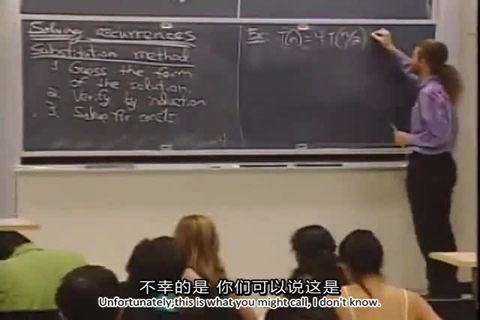 Solving recurrences
Substitution method
1. Guess the form
of the solution.
2. Verify by induction
3. Solve for consts
Ex: T(n) = 4T(n/2)
不幸的是 你们可以说这是
Unfortunately this is what you might call, I don't know.